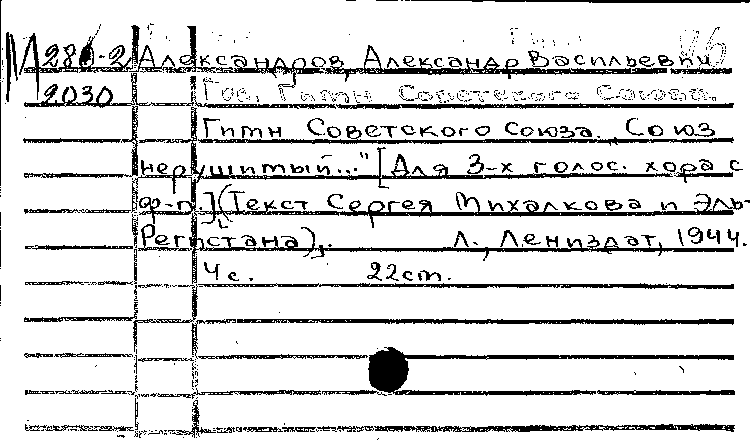 М 280-2 Александров, Александр Васильевич
2030 Гос. Гимн Советского Союза.
Гимн Советского Союза. „Союз
нерушимый..." [Для 3-х голос. хора с
ф-п.] (Текст Сергея Михалкова и Эль-
Регистана). Л., Лениздат, 1944.
4 с. 22 см.